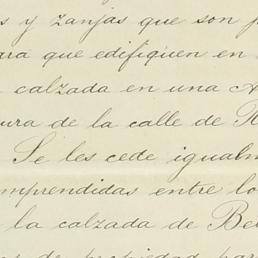 s y zanjas que son p
ara que edifiquen en
calzada en una A
ura de la calle de R
Se les cede igualm
omprendidas entre lo
la calzada de Be
de propiedad par